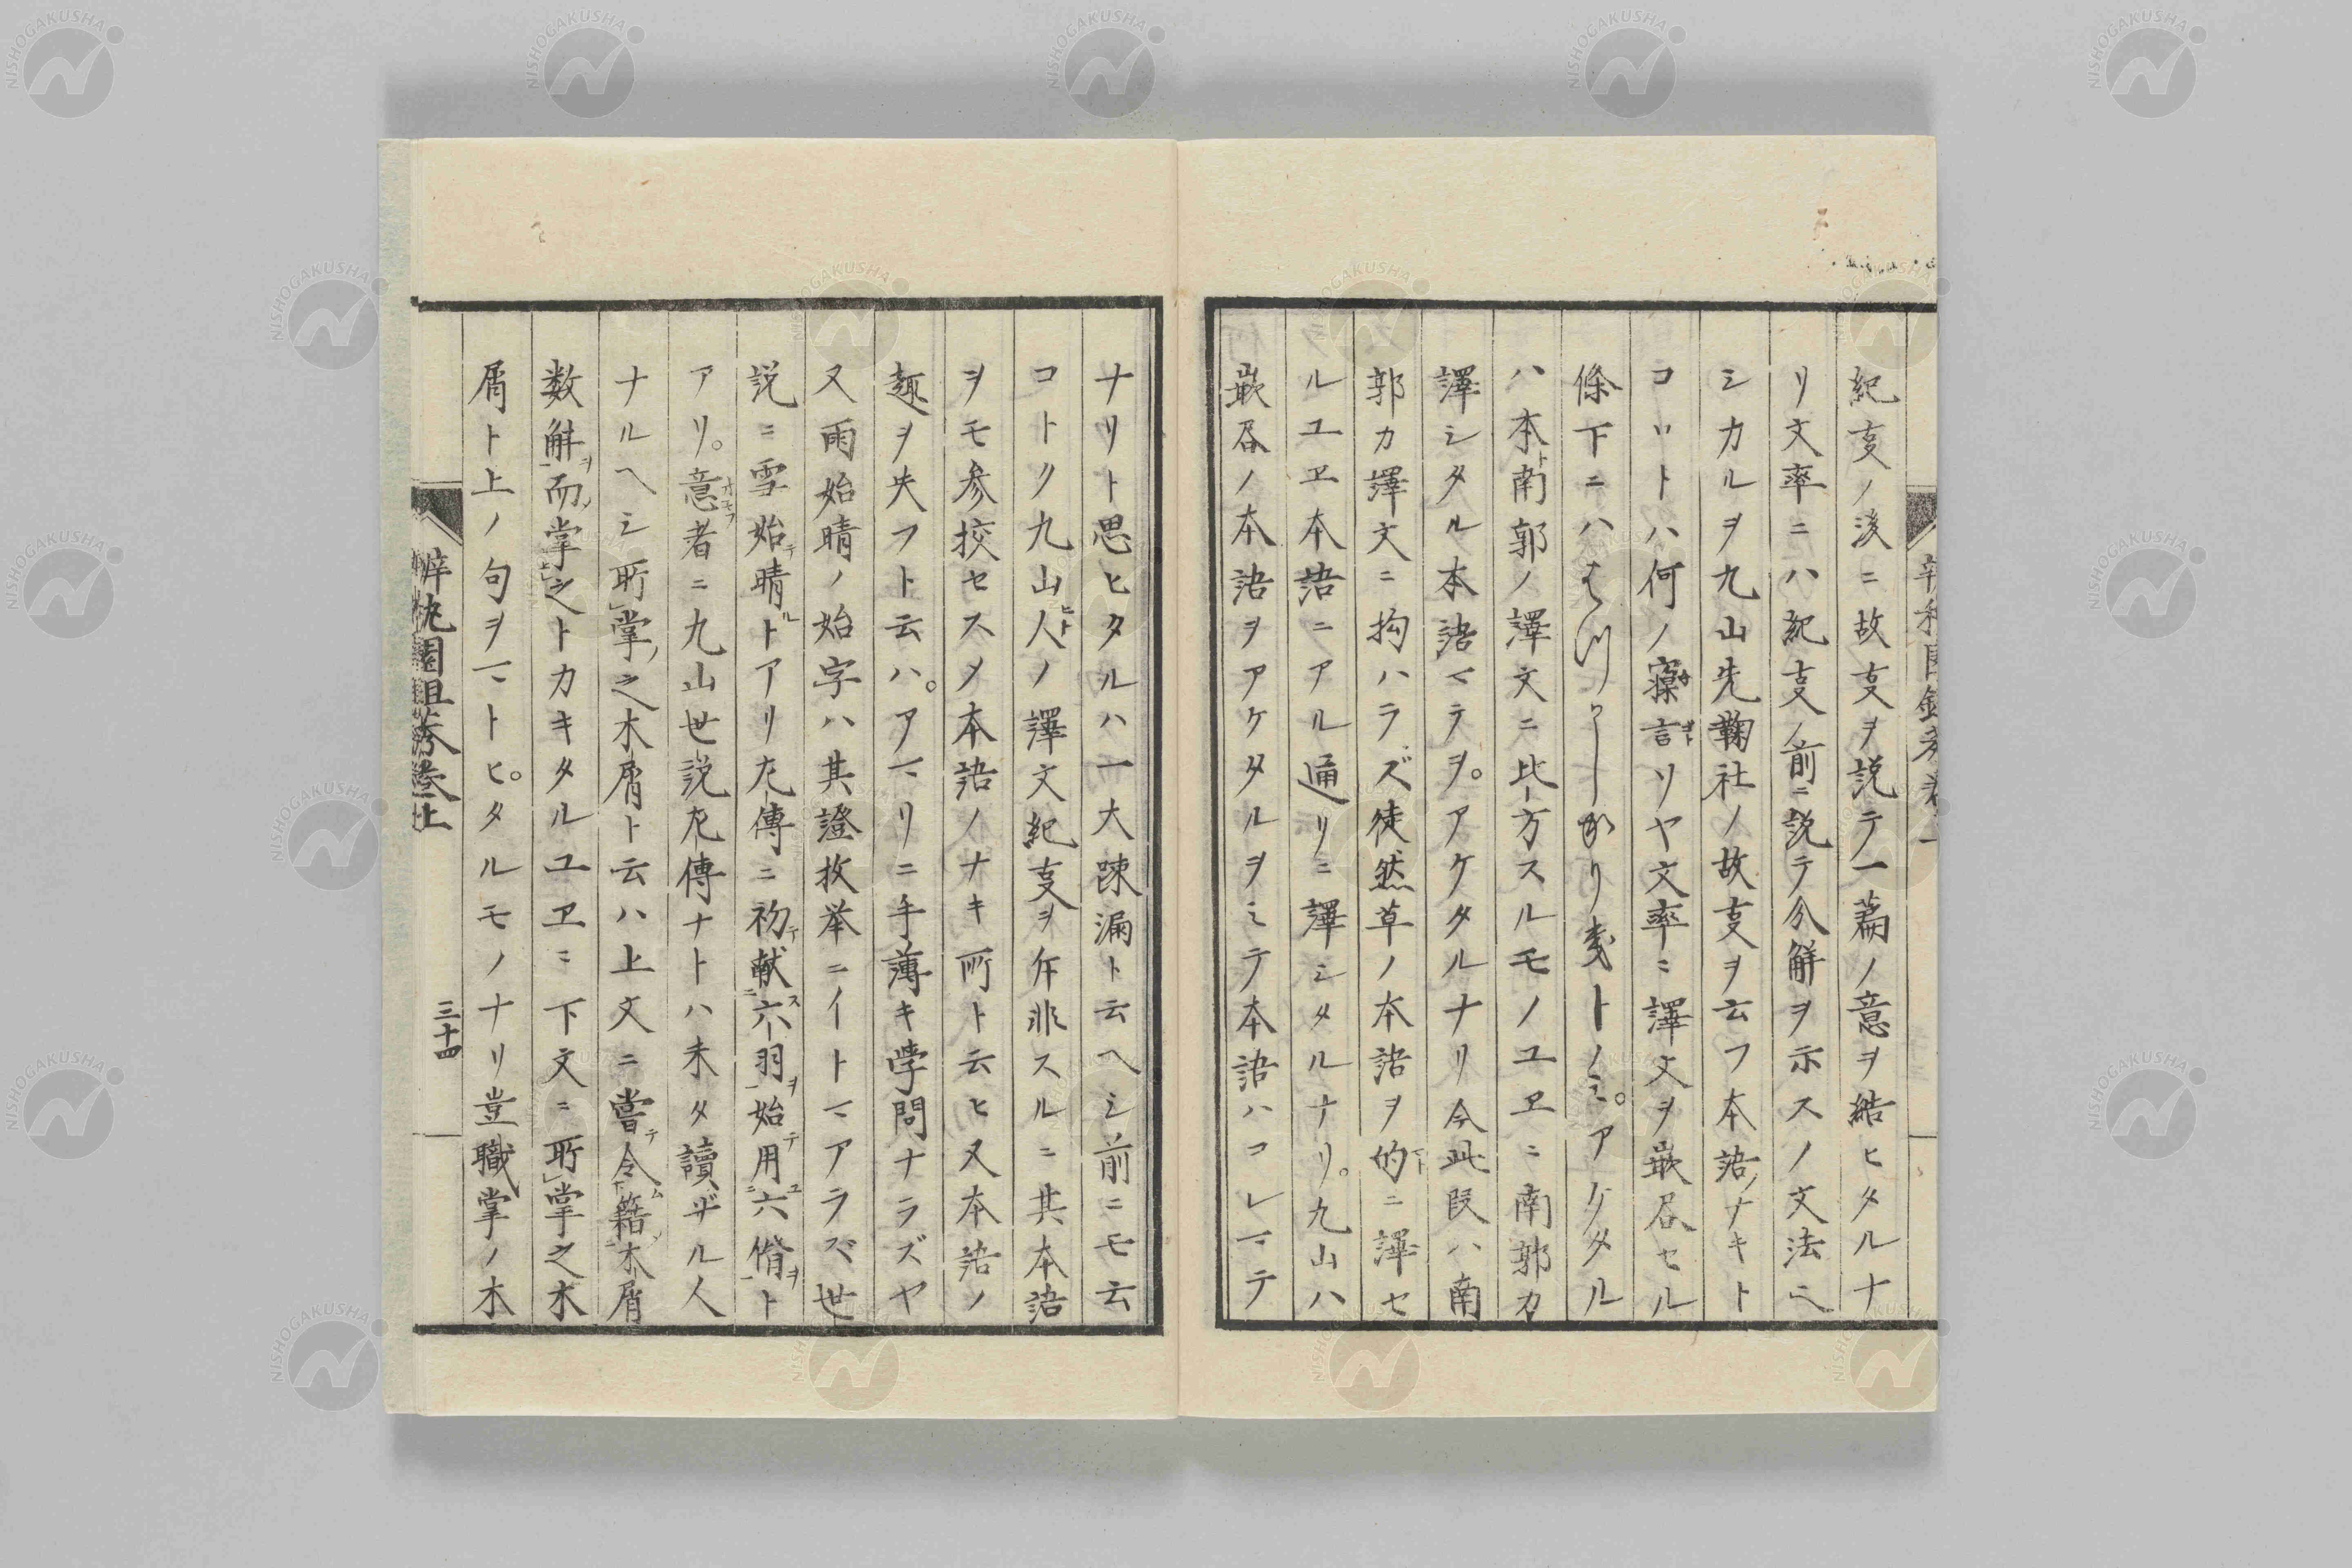 紀㕝ノ後ニ故㕝ヲ説テ一篇ノ意ヲ結ヒタルナ
リ文率ニハ紀㕝ノ前ニ説テ分解ヲ示スノ文法ニ
シカルヲ九山先鞠社ノ故㕝ヲ云フ本語ノナキト
コロトハ何ノ寱言ソヤ文率ニ譯文ヲ嵌名セル
條下ニハ トノミ。アケタル
ハ本ト南郭ノ譯文ニ比方スルモノユヱニ南郭カ
譯シタル本語マテヲ。アケタルナリ今此段ハ南
郭カ譯文ニ拘ハラズ徒然草ノ本語ヲ的ニ譯セ
ルユヱ本語ニアル通リニ譯シタルナリ。九山ハ
嵌名ノ本語ヲアケタルヲミテ本語ハコレマテ
ナリト思ヒタルハ一大疎漏ト云ヘシ前ニモ云
コトク九山人ノ譯文紀㕝ヲ是非スルニ其本語
ヲモ参挍セスメ本語ノナキ所ト云ヒ又本語ノ
趣ヲ失フト云ハ。アマリニ手薄キ學問ナラズヤ
又雨始晴ノ始字ハ其證枚挙ニイトマアラズ世
説ニ雪始テ晴ルトアリ左傳ニ初テ献六羽ヲ始テ用六佾ヲト
アリ。意者ニ九山世説左傳ナトハ未タ讀ザル人
ナルヘシ所掌ノ之木屑ト云ハ上文ニ嘗テ令籍木屑
数斛ヲ而掌之トカキタルユヱニ下文ニ所掌之木
屑ト上ノ句ヲマトヒ。タルモノナリ豈職掌ノ木
辨快園俎莠巻上
三十四